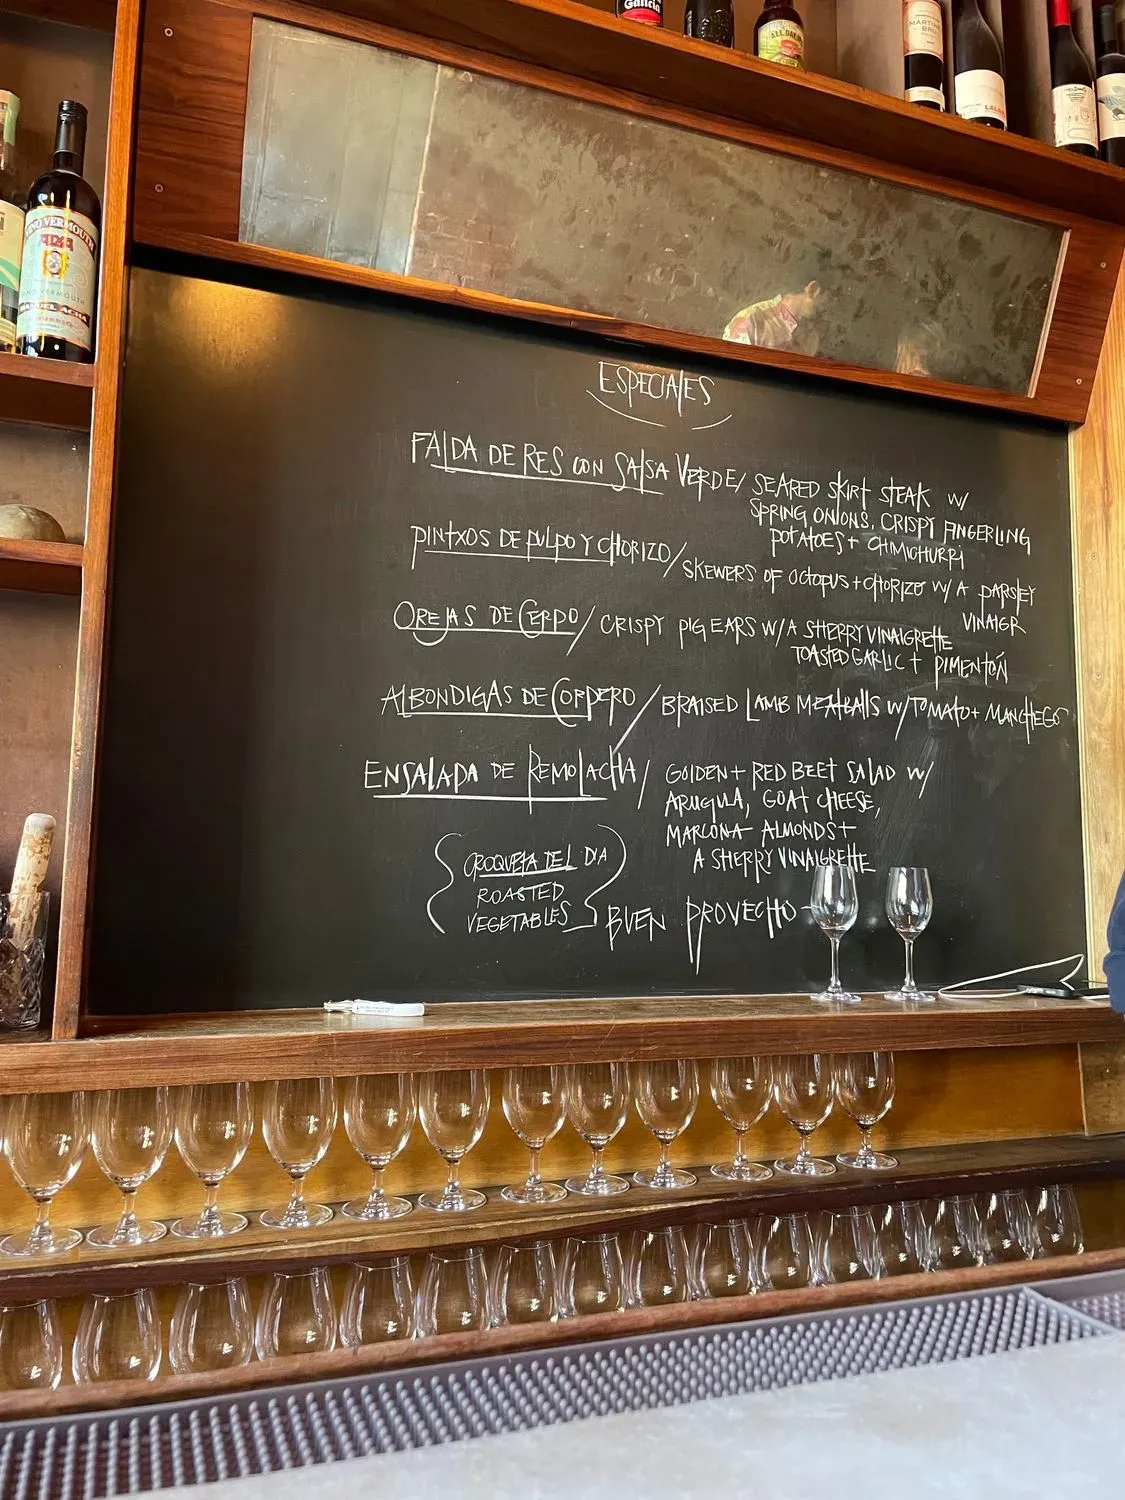 Galicia
ALL DAY
MARTIN
BRU
LALA
VINO VERMOUTH
VERMOUTH
ESPECIALES
FALDA DE RES CON SALSA VERDE/ SEARED SKIRT STEAK W/
SPRING ONIONS, CRISPY FINGERLING
POTATOES + CHIMICHURRI
PINTXOS DE PULPO Y CHORIZO/ SKEWERS OF OCTOPUS + CHORIZO W/ A PARSLEY
VINAIGR
OREJAS DE CERDO/ CRISPY PIG EARS W/ A SHERRY VINAIGRETTE
TOASTED GARLIC + PIMENTÓN
ALBONDIGAS DE CORDERO/ BRAISED LAMB MEATBALLS W/ TOMATO + MANCHEGO
ENSALADA DE REMOLACHA/ GOLDEN + RED BEET SALAD W/
ARUGULA, GOAT CHEESE,
MARCONA ALMONDS +
A SHERRY VINAIGRETTE
CROQUETA DEL DIA
ROASTED
VEGETABLES
BUEN PROVECHO-